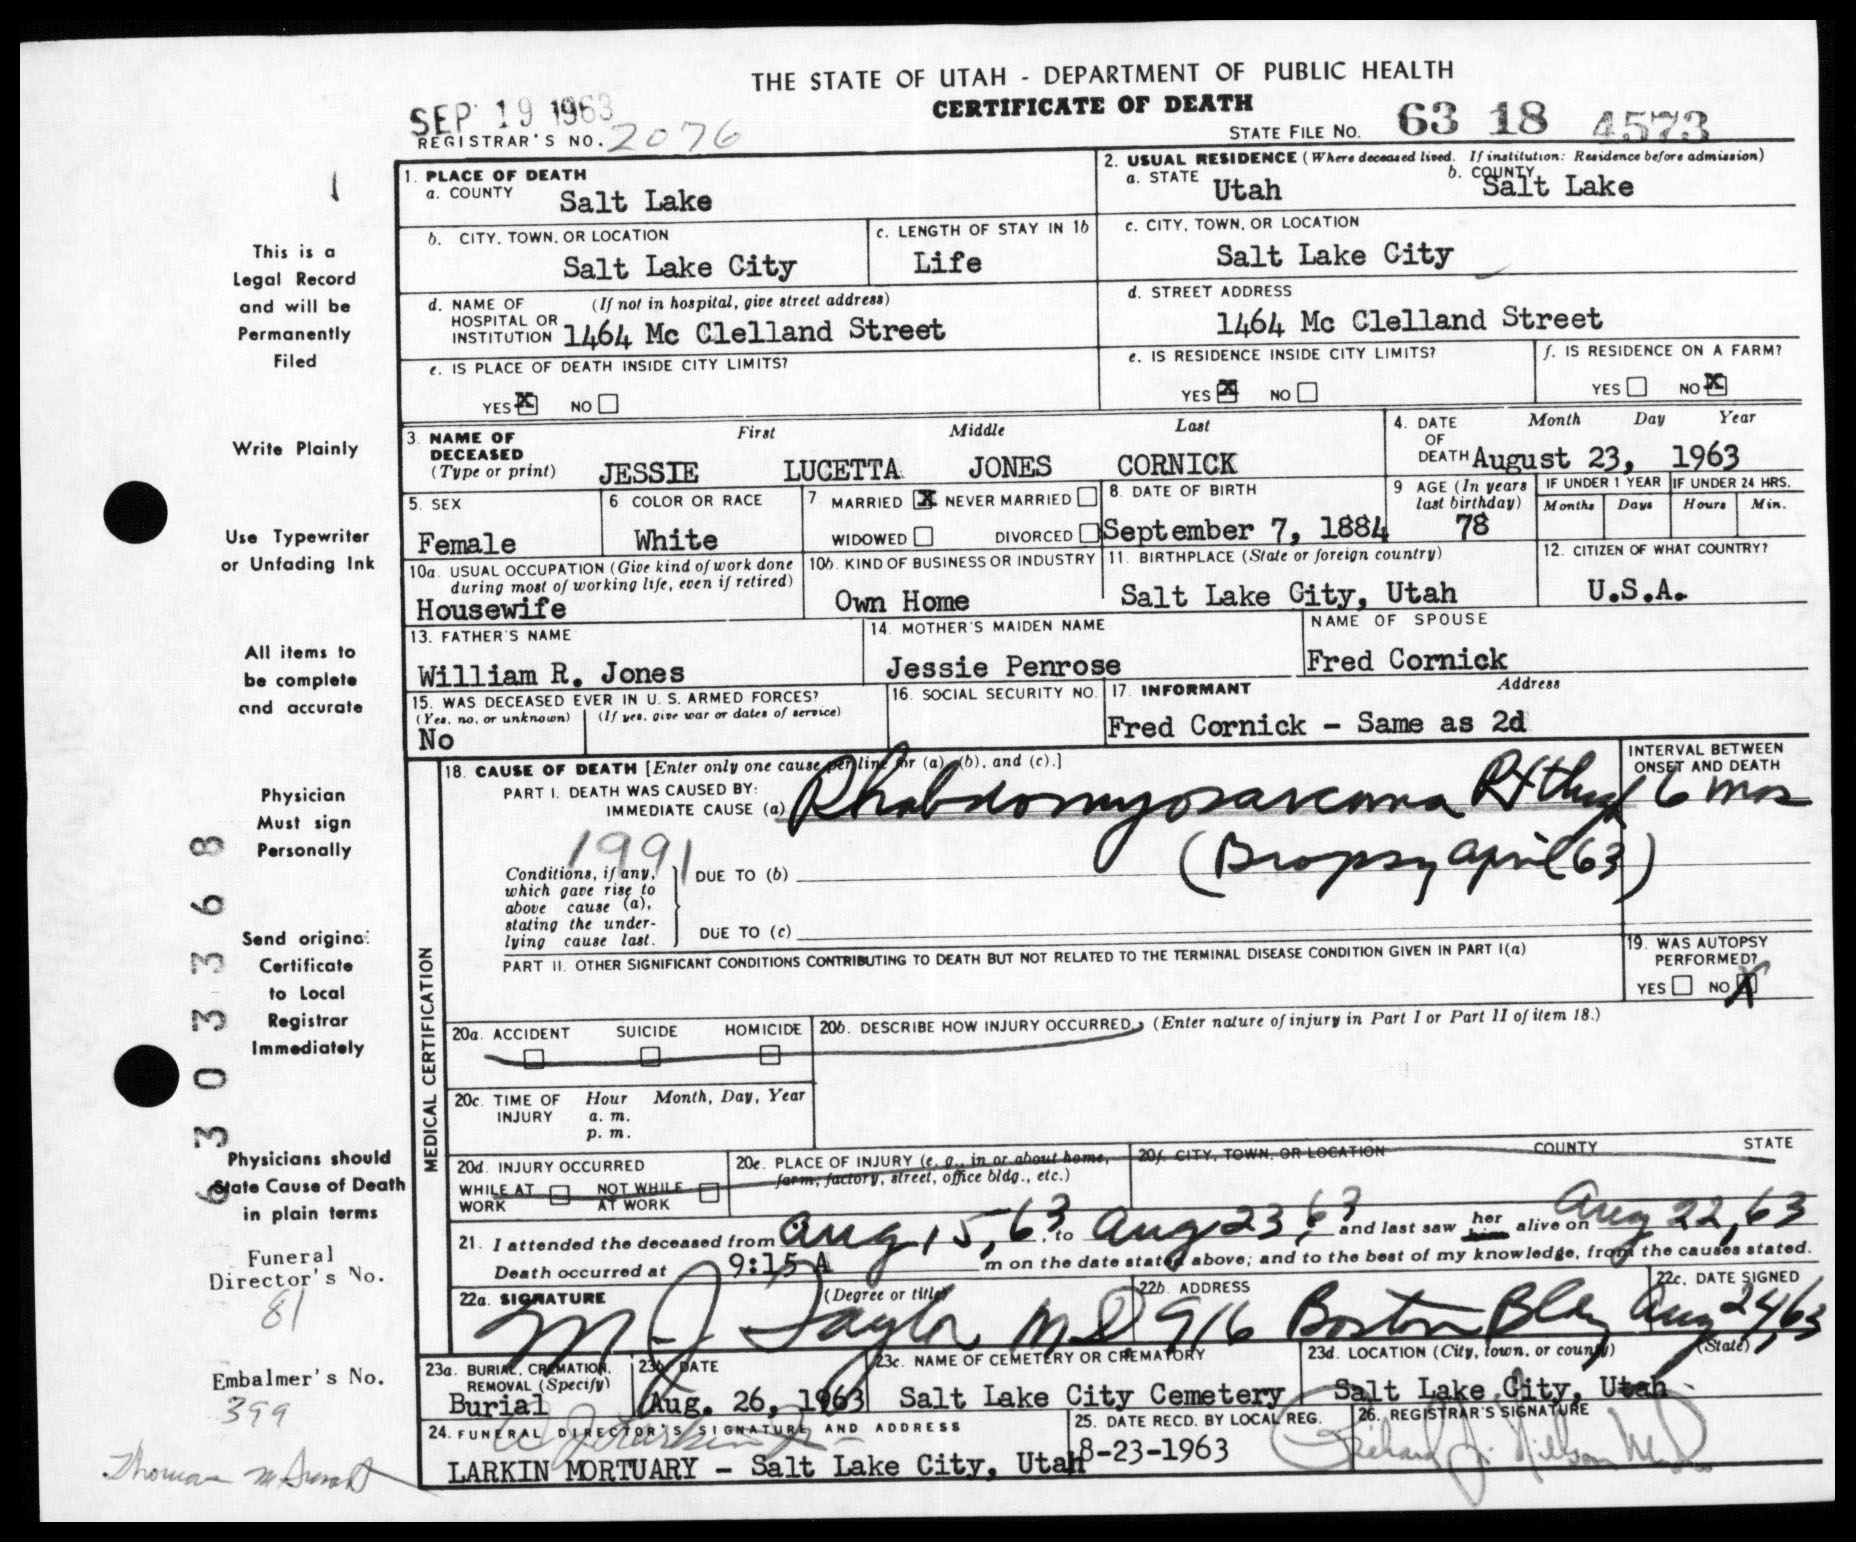 THE STATE OF UTAH - DEPARTMENT OF PUBLIC HEALTH
CERTIFICATE OF DEATH
SEP 19 1963
REGISTRAR'S NO. 2076
STATE FILE NO. 63 18 4573
1. PLACE OF DEATH
a. COUNTY Salt Lake
2. USUAL RESIDENCE (Where deceased lived. If institution: Residence before admission)
a. STATE Utah b. COUNTY Salt Lake
b. CITY, TOWN, OR LOCATION Salt Lake City
c. LENGTH OF STAY IN 1b Life
c. CITY, TOWN, OR LOCATION Salt Lake City
d. NAME OF HOSPITAL OR INSTITUTION (If not in hospital, give street address)
1464 Mc Clelland Street
d. STREET ADDRESS
1464 Mc Clelland Street
e. IS PLACE OF DEATH INSIDE CITY LIMITS?
YES X NO
e. IS RESIDENCE INSIDE CITY LIMITS?
YES X NO
f. IS RESIDENCE ON A FARM?
YES NO X
3. NAME OF DECEASED (Type or print) First Middle Last
JESSIE LUCETTA JONES CORNICK
4. DATE OF DEATH Month Day Year
August 23, 1963
5. SEX Female
6 COLOR OR RACE White
7. MARRIED X NEVER MARRIED
WIDOWED DIVORCED
8. DATE OF BIRTH September 7, 1884
9 AGE (In years last birthday) 78
IF UNDER 1 YEAR Months Days
IF UNDER 24 HRS. Hours Min.
10a. USUAL OCCUPATION (Give kind of work done during most of working life, even if retired)
Housewife
10b. KIND OF BUSINESS OR INDUSTRY
Own Home
11. BIRTHPLACE (State or foreign country)
Salt Lake City, Utah
12. CITIZEN OF WHAT COUNTRY?
U.S.A.
13. FATHER'S NAME
William R. Jones
14. MOTHER'S MAIDEN NAME
Jessie Penrose
NAME OF SPOUSE
Fred Cornick
15. WAS DECEASED EVER IN U. S. ARMED FORCES?
(Yes, no, or unknown) (If yes, give war or dates of service)
No
16. SOCIAL SECURITY NO.
17. INFORMANT Address
Fred Cornick - Same as 2d
MEDICAL CERTIFICATION
18. CAUSE OF DEATH [Enter only one cause per line for (a), (b), and (c).]
INTERVAL BETWEEN ONSET AND DEATH
PART I. DEATH WAS CAUSED BY:
IMMEDIATE CAUSE (a) Rhabdomyosarcoma Rt thigh 6 mos
(Biopsy April 63)
1991
Conditions, if any, which gave rise to above cause (a), stating the underlying cause last.
DUE TO (b)
DUE TO (c)
PART II. OTHER SIGNIFICANT CONDITIONS CONTRIBUTING TO DEATH BUT NOT RELATED TO THE TERMINAL DISEASE CONDITION GIVEN IN PART I(a)
19. WAS AUTOPSY PERFORMED?
YES NO X
20a. ACCIDENT SUICIDE HOMICIDE
20b. DESCRIBE HOW INJURY OCCURRED. (Enter nature of injury in Part I or Part II of item 18.)
20c. TIME OF INJURY Hour Month, Day, Year
a. m.
p. m.
20d. INJURY OCCURRED
WHILE AT WORK NOT WHILE AT WORK
20e. PLACE OF INJURY (e. g., in or about home, farm, factory, street, office bldg., etc.)
20f. CITY, TOWN, OR LOCATION COUNTY STATE
21. I attended the deceased from Aug 15, 63, to Aug 23, 63 and last saw her him alive on Aug 22, 63
Death occurred at 9:15 A m on the date stated above; and to the best of my knowledge, from the causes stated.
22a. SIGNATURE (Degree or title)
M J Taylor MD
22b. ADDRESS
916 Boston Bldg
22c. DATE SIGNED
Aug 24, 63
23a. BURIAL, CREMATION, REMOVAL (Specify)
Burial
23b. DATE
Aug. 26, 1963
23c. NAME OF CEMETERY OR CREMATORY
Salt Lake City Cemetery
23d. LOCATION (City, town, or county) (State)
Salt Lake City, Utah
24. FUNERAL DIRECTOR'S SIGNATURE AND ADDRESS
LARKIN MORTUARY - Salt Lake City, Utah
25. DATE RECD. BY LOCAL REG.
8-23-1963
26. REGISTRAR'S SIGNATURE
Richard J. Nilson MD
1
This is a
Legal Record
and will be
Permanently
Filed
Write Plainly
Use Typewriter
or Unfading Ink
All items to
be complete
and accurate
Physician
Must sign
Personally
Send original
Certificate
to Local
Registrar
Immediately
Physicians should
State Cause of Death
in plain terms
6303368
Funeral
Director's No.
81
Embalmer's No.
399